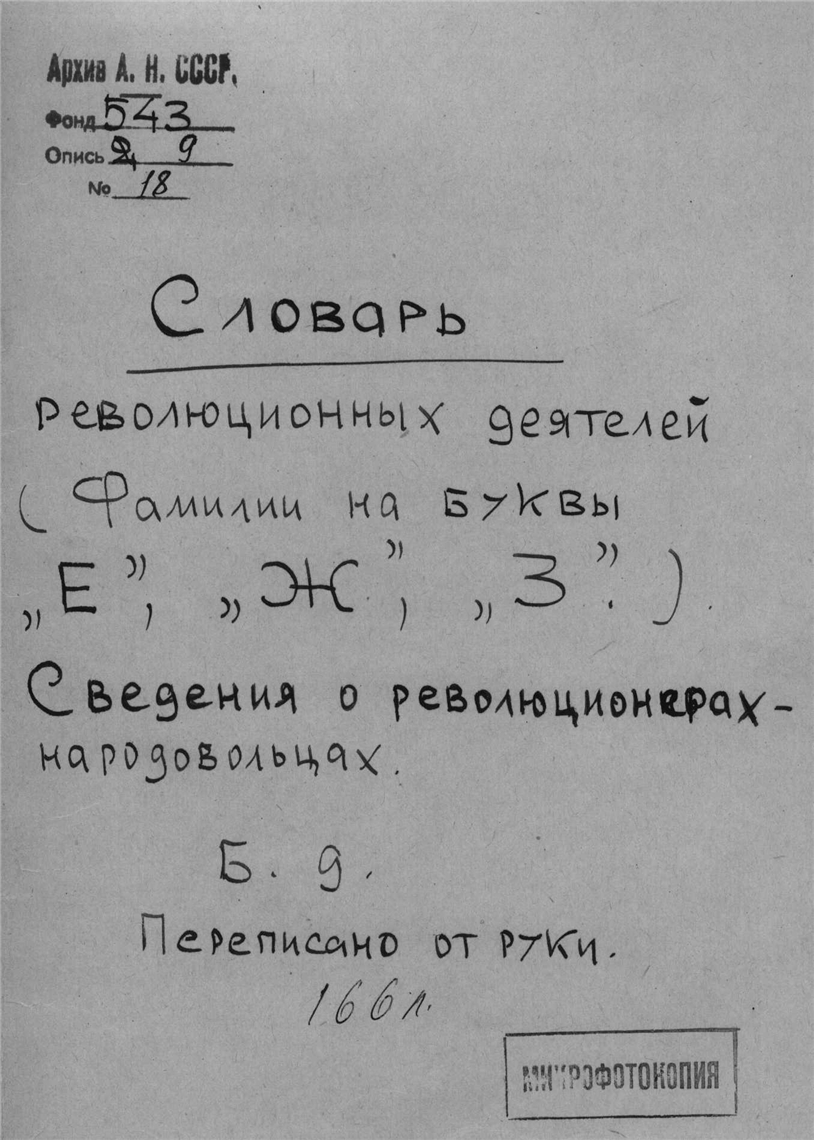 Архив А. Н. СССР.
Фонд 543
Опись 9
№ 18
Словарь
революционных деятелей
( Фамилии на буквы
„Е”, „Ж”, „З”. ).
Сведения о революционерах-
народовольцах.
Б. д.
Переписано от руки.
166 л.
МИКРОФОТОКОПИЯ